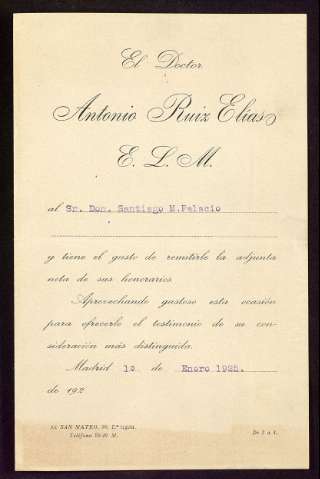 El Doctor
Antonio Ruiz Elias
E. L. M.
al Sr. Don. Santiago M. Palacio
y tiene el gusto de remitirle la adjunta
nota de sus honorarios
Aprovechando gustoso esta ocasión
para ofrecerle el testimonio de su con-
sideración más distinguida.
Madrid 1º de Enero 1925.
de 192
SAN MATEO,
Teléfono M.
De 2 a 4.